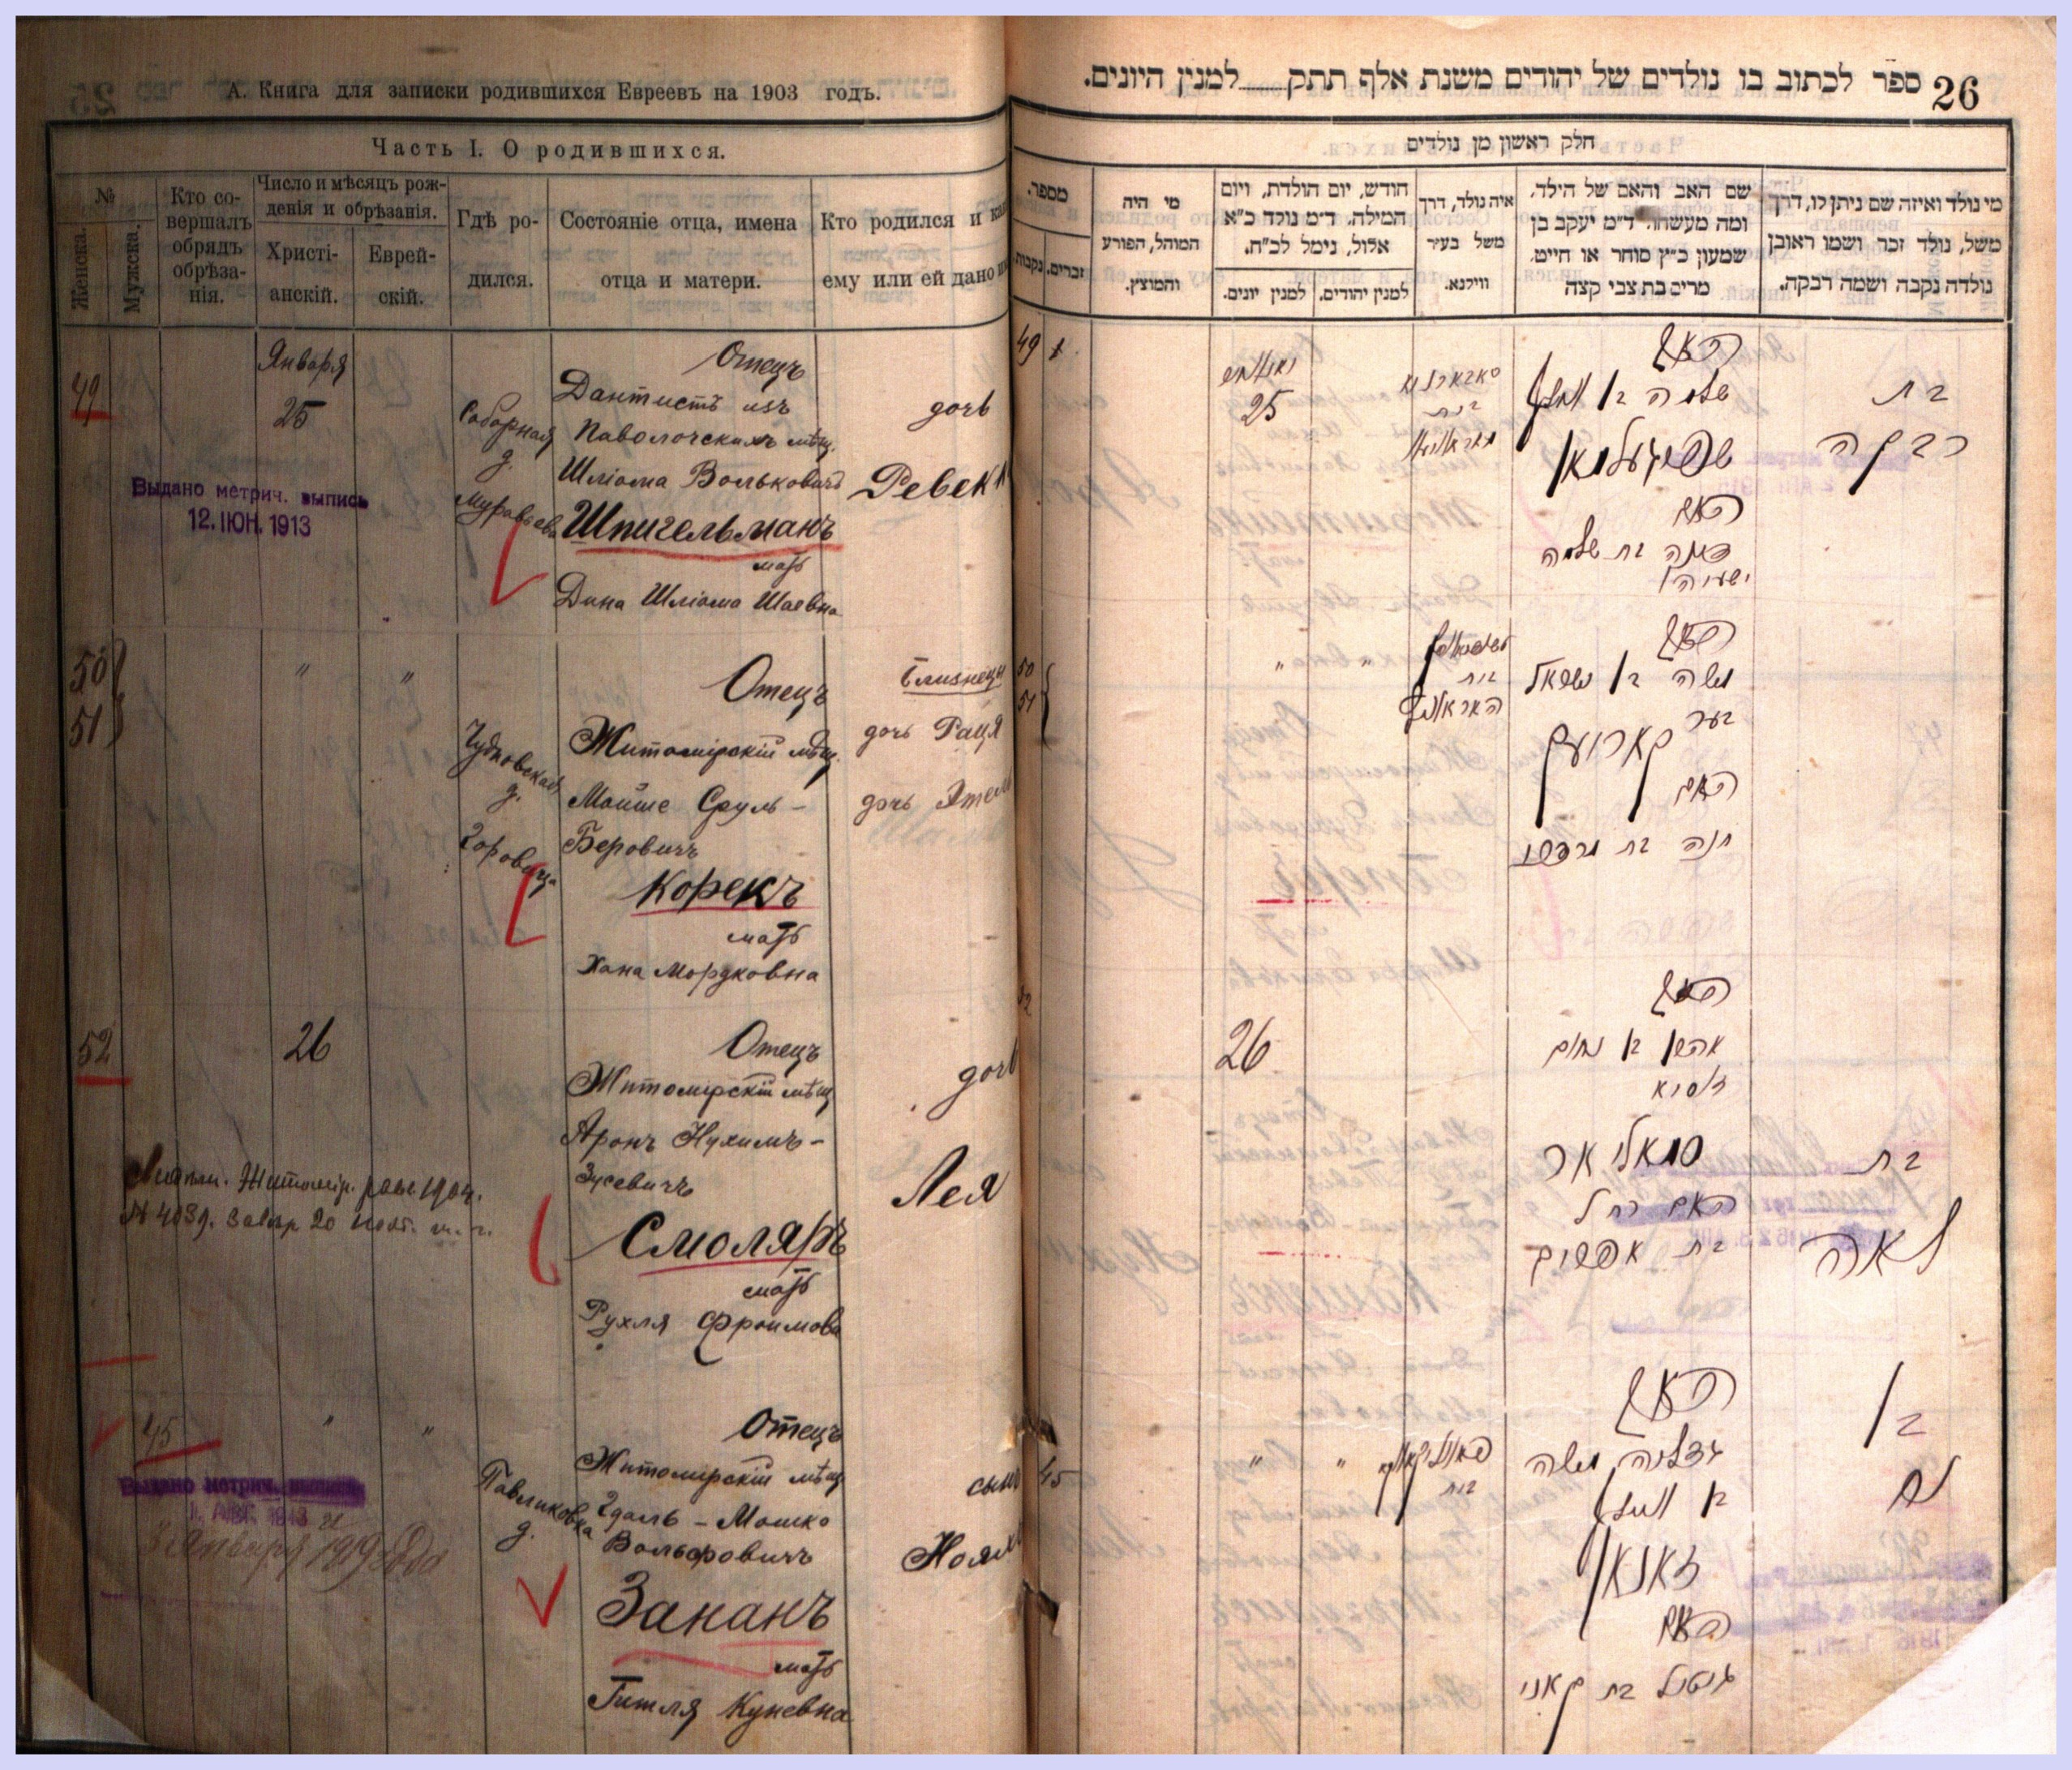 А. Книга для записки родившихся Евреевъ на 1903 годъ.
Часть I. О родившихся.
№
Женска.
Мужска.
Кто со-
вершалъ
обрядъ
обрѣза-
нія.
Число и мѣсяцъ рож-
денія и обрѣзанія.
Христі-
анскій.
Еврей-
скій.
Гдѣ ро-
дился.
Состояніе отца, имена
отца и матери.
Кто родился и как
ему или ей дано
49
Января
25
Соборная
д.
Муравьева
Отецъ
Дантистъ изъ
Паволочскихъ мѣщ.
Шліома Вольковичъ
Шпигельманъ
мать
Дина Шліома Шаевна
дочь
Ревекк
Выдано метрич. выпись
12. ІЮН. 1913
50
51
"
"
Чудновская
д.
Горовица
Отецъ
Житомірскій мѣщ.
Мойше Сруль-
Беровичъ
Корекъ
мать
Хана Мордковна
Близнецы
дочь Рация
дочь Этель
52
26
Отецъ
Житомірскій мѣщ
Аронъ Нухимъ-
Зусевичъ
Смоляръ
мать
Рухля Фроимовна
дочь
Лея
45
"
"
Павликовка
д.
Отецъ
Житомірскій мѣщ
Гдаль-Мошко
Вольфовичъ
Зананъ
мать
Гитля Куневна
сынъ
Ноях
Выдано метрич. выпись
1. АВГ. 1913
3 Января 1919 года
26
ספר לכתוב בו נולדים של יהודים משנת אלף תתק למנין היונים.
חלק ראשון מן נולדים
מי נולד ואיזה שם ניתן לו, דרך
משל, נולד זכר ושמו ראובן
נולדה נקבה ושמה רבקה.
שם האב והאם של הילד,
ומה מעשהו. ד"מ יעקב בן
שמעון כ"ץ סוחר או חייט.
מרים בת צבי קצה
איה נולד, דרך
משל בעיר
ווילנא.
חודש, יום הולדת, ויום
המילה. ד"מ נולד כ"א
אלול, נימל לכ"ח.
למנין יהודים.
למנין יונים.
מי היה
המוהל, הפורע
והמוצץ.
מספר.
זכרים.
נקבות.
49
25
האב
שלמה בן וועלף
שפיגעלמאן
האם
בת שלמה
ישעיהו
בת
רבקה
50
51
"
"
האב
משה בן ישראל
בער
קארעק
האם
חנה בת מרדכי
26
האב
אהרן בן נחום
זוסיא
סמאליאר
האם רחל
בת אפרים
בת
לאה
45
"
"
האב
גדליה משה
בן וועלף
זאנאן
האם
גיטל בת קאני
בן
נח